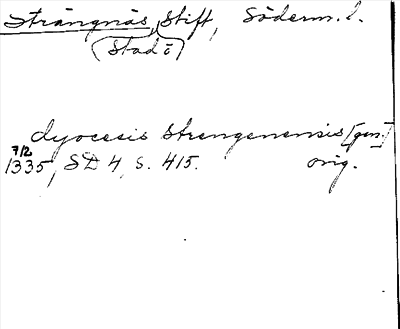 Strängnäs, Stift, Söderm. l.
(Stad ö)
dyocesis Strengenensis [gen.]
7/2
1335, SD 4, s. 415. orig.